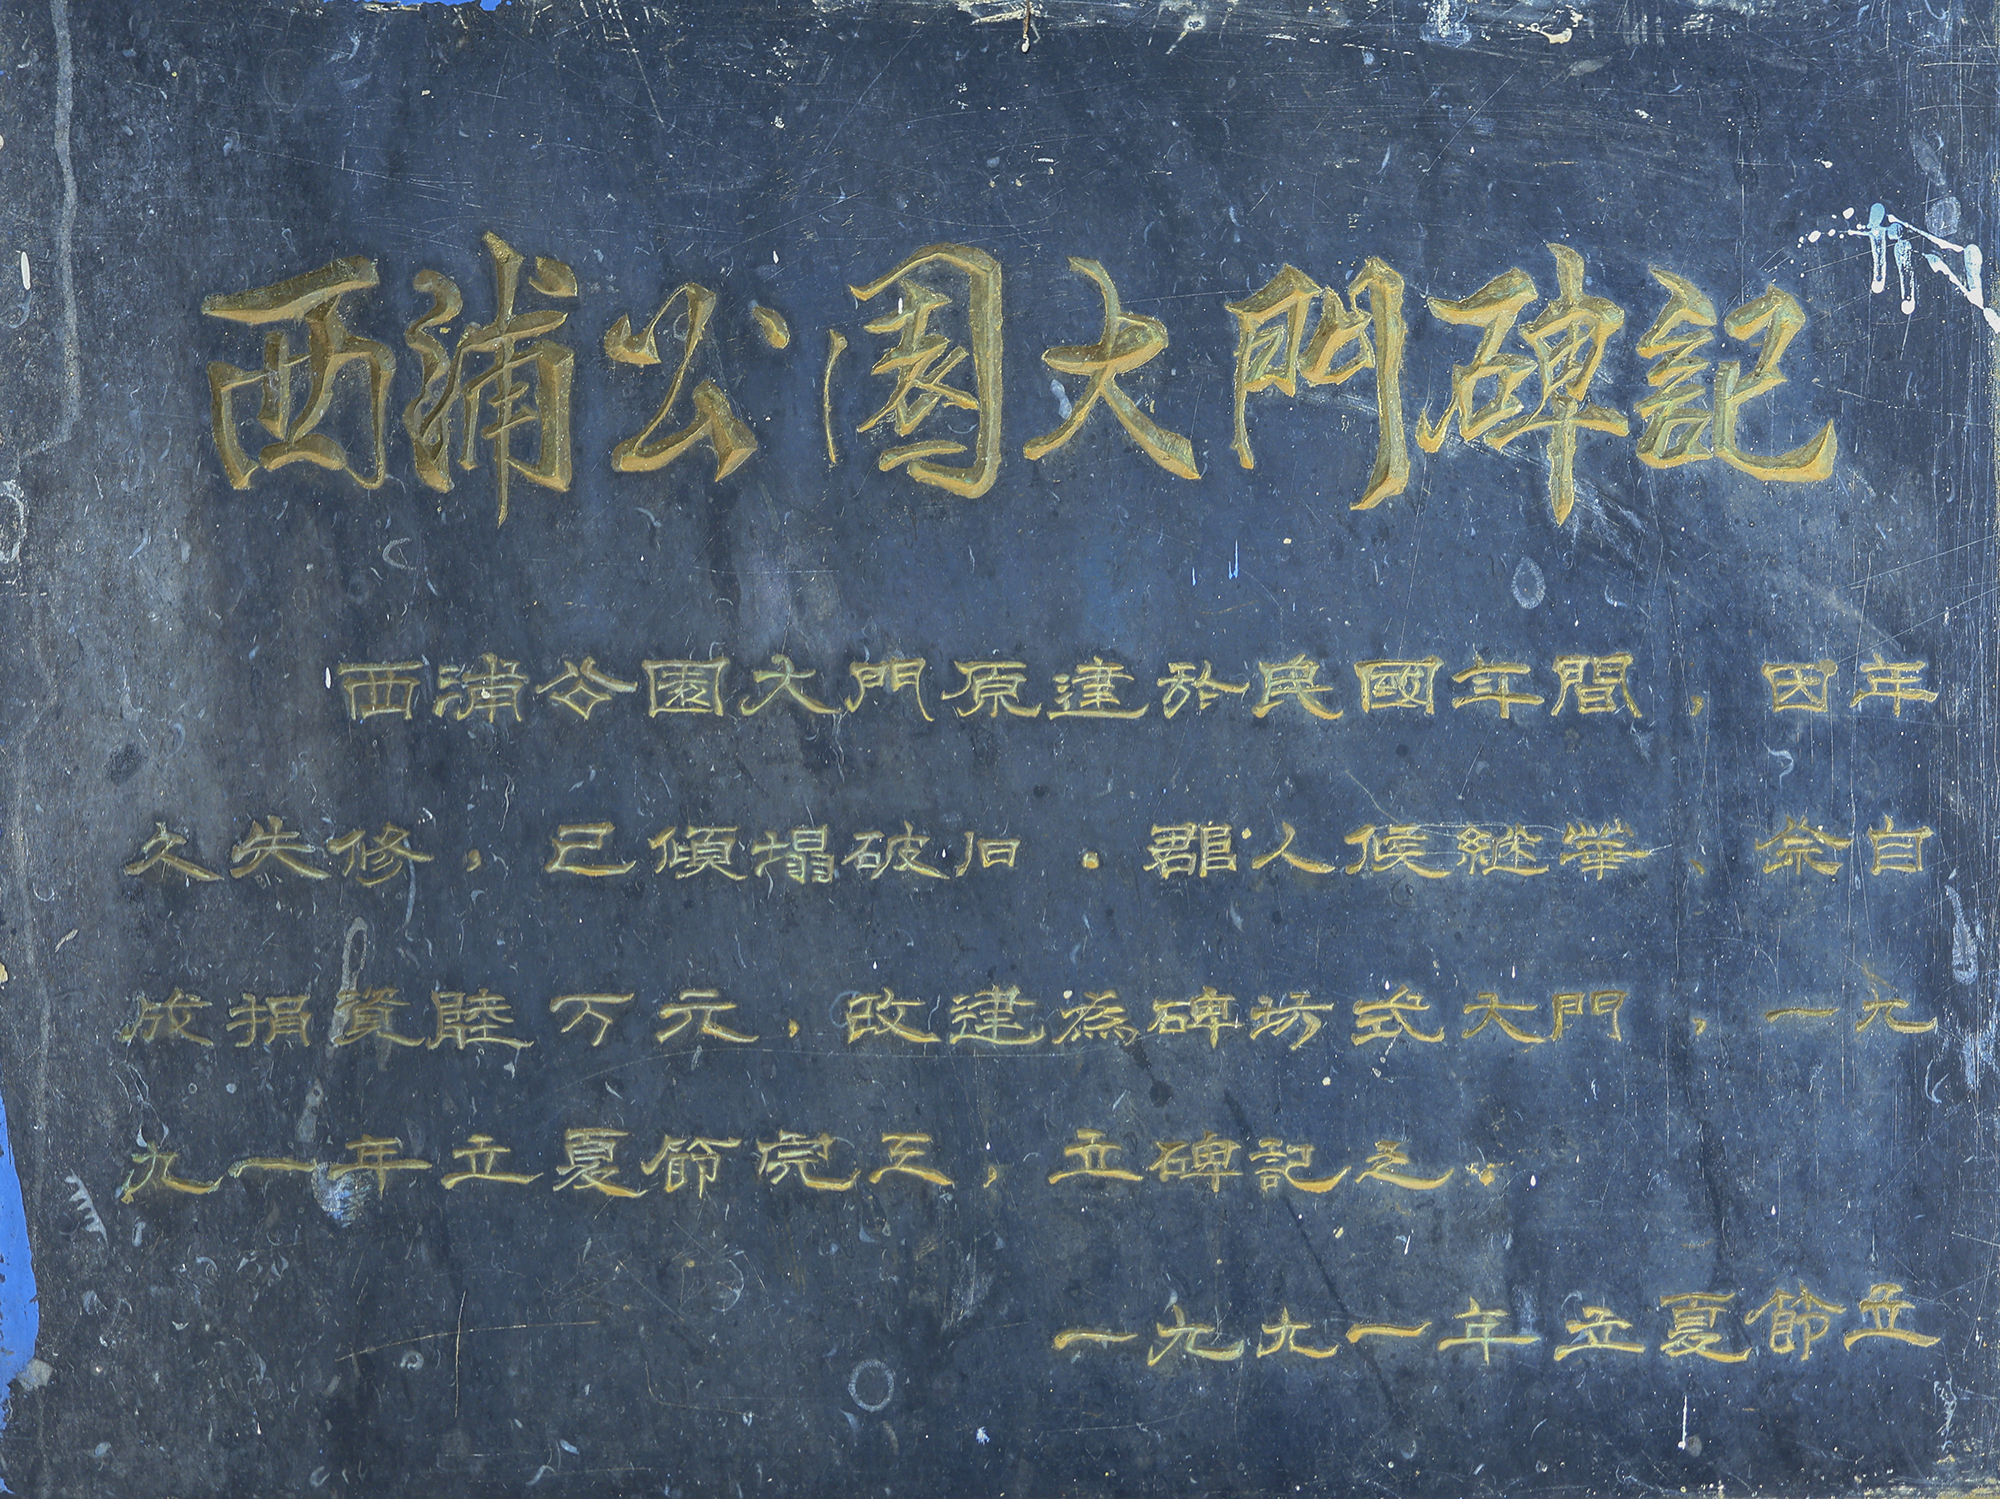 西浦公園大門碑記
西浦公園大門原建於民國年間，因年
久失修，已傾塌破旧。郡人候継華、佘自
成捐資陸万元，改建為碑坊式大門，一九
九一年立夏節完工，立碑記之。
一九九一年立夏節立